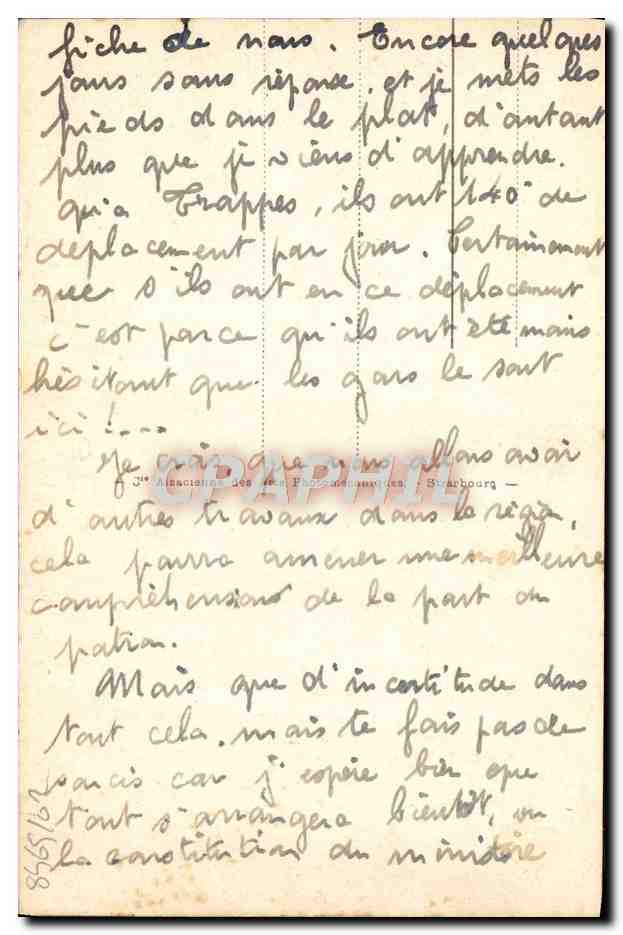 fiche de nous. Encore quelques
jours sans réponse, et je mets les
pieds dans le plat, d'autant
plus que je viens d'apprendre.
qu'a Trappes, ils ont 140° de
déplacement par jour. Certainement
que s'ils ont eu ce déplacement
c'est parce qu'ils ont été moins
hésitant que les gars le sont
ici !....
Je crois que nous allons avoir
Cie Alsacienne des Arts Photomécaniques - Strasbourg
CPAPHIL
d'autres travaux dans la région,
cela pourra amener une meilleure
compréhension de la part du
patron.
Mais que d'incertitude dans
tout cela. mais te fais pas de
soucis car j'espère bien que
tout s'arrangera bientôt, vu
la constitution du ministère